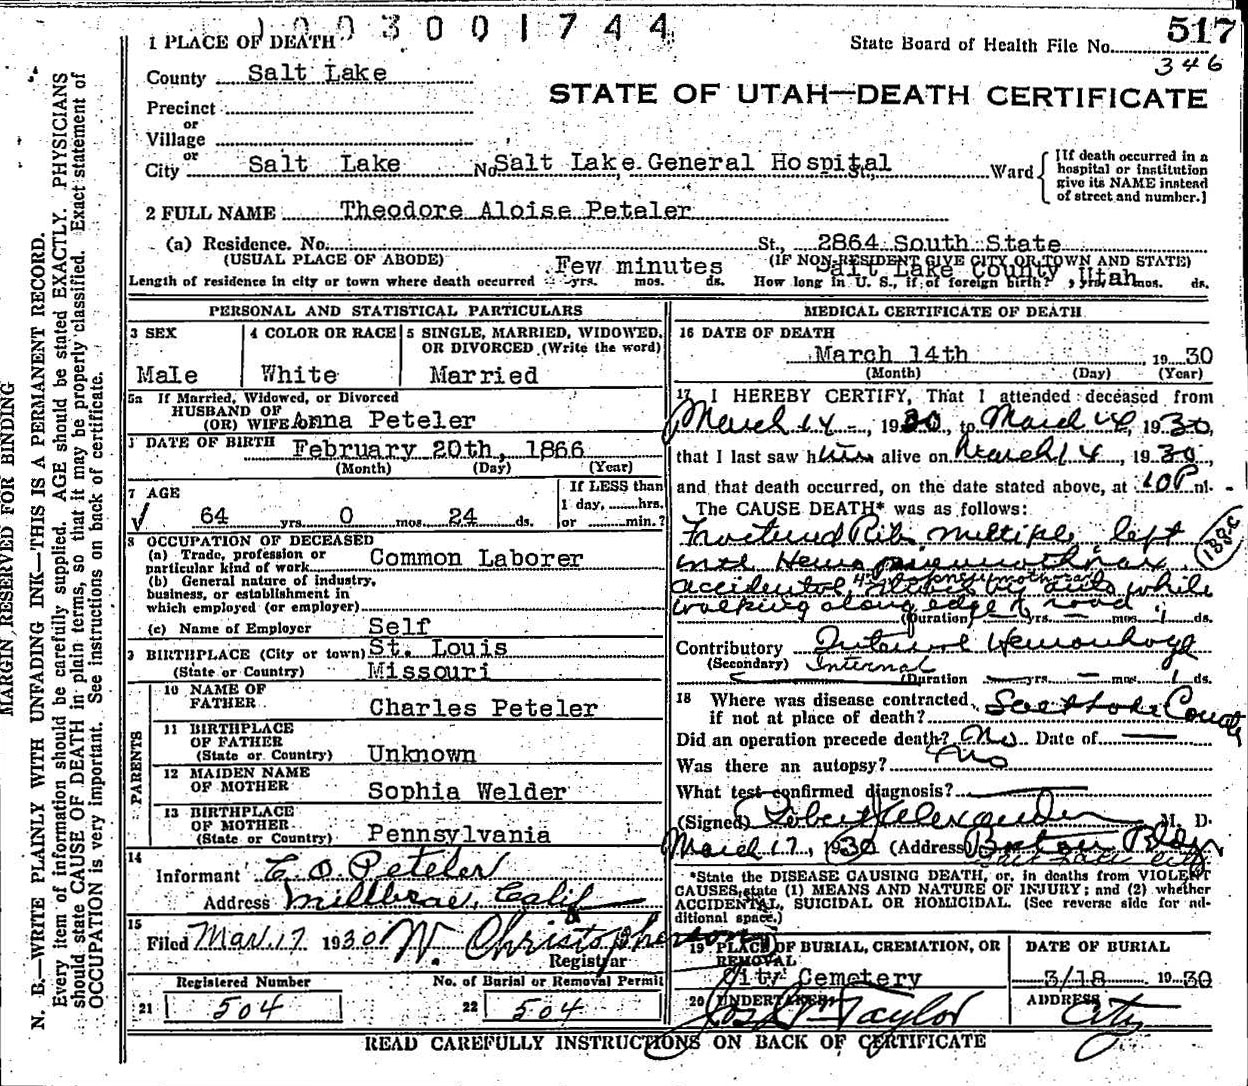 1003001744
517
State Board of Health File No.
346
1 PLACE OF DEATH
County Salt Lake
STATE OF UTAH—DEATH CERTIFICATE
Precinct
or
Village
or
City Salt Lake No. Salt Lake General Hospital St., Ward
[If death occurred in a hospital or institution give its NAME instead of street and number.]
2 FULL NAME Theodore Aloise Peteler
(a) Residence. No. St., 2864 South State
(USUAL PLACE OF ABODE) (IF NON-RESIDENT GIVE CITY OR TOWN AND STATE)
Salt Lake County, Utah
Length of residence in city or town where death occurred Few minutes yrs. mos. ds. How long in U. S., if of foreign birth? yrs. mos. ds.
PERSONAL AND STATISTICAL PARTICULARS
3 SEX
Male
4 COLOR OR RACE
White
5 SINGLE, MARRIED, WIDOWED,
OR DIVORCED (Write the word)
Married
5a If Married, Widowed, or Divorced
HUSBAND OF
(OR) WIFE OF Anna Peteler
DATE OF BIRTH February 20th, 1866
(Month) (Day) (Year)
7 AGE
64 yrs. 0 mos. 24 ds.
If LESS than
1 day, hrs.
or min.?
8 OCCUPATION OF DECEASED
(a) Trade, profession or
particular kind of work Common Laborer
(b) General nature of industry,
business, or establishment in
which employed (or employer)
(c) Name of Employer Self
9 BIRTHPLACE (City or town) St. Louis
(State or Country) Missouri
PARENTS
10 NAME OF
FATHER Charles Peteler
11 BIRTHPLACE
OF FATHER
(State or Country) Unknown
12 MAIDEN NAME
OF MOTHER Sophia Welder
13 BIRTHPLACE
OF MOTHER
(State or Country) Pennsylvania
14
Informant C. O. Peteler
Address Millbrae, Calif
15
Filed Mar. 17 1930 W. Christopherson
Registrar
Registered Number
21 504
No. of Burial or Removal Permit
22 504
MEDICAL CERTIFICATE OF DEATH
16 DATE OF DEATH
March 14th 1930
(Month) (Day) (Year)
17 I HEREBY CERTIFY, That I attended deceased from
March 14, 1930, to March 14, 1930,
that I last saw him alive on March 14, 1930,
and that death occurred, on the date stated above, at 10 P m.
The CAUSE DEATH* was as follows:
Fractured Ribs, multiple, left
188c
with Hemopneumothorax
accidental, struck by auto while
walking along edge of road.
(Duration) yrs. — mos. 1 ds.
Contributory Internal Hemorrhage
(Secondary) Internal
(Duration yrs. — mos. 1 ds.
18 Where was disease contracted,
if not at place of death? Salt Lake County
Did an operation precede death? No Date of —
Was there an autopsy? No
What test confirmed diagnosis?
(Signed) Robert Alexander M. D.
March 17, 1930 (Address) Boston Bldg
Salt Lake City
*State the DISEASE CAUSING DEATH, or, in deaths from VIOLENT
CAUSES, state (1) MEANS AND NATURE OF INJURY; and (2) whether
ACCIDENTAL, SUICIDAL OR HOMICIDAL. (See reverse side for additional space.)
19 PLACE OF BURIAL, CREMATION, OR
REMOVAL
City Cemetery
DATE OF BURIAL
3/18 1930
20 UNDERTAKER
Jos. Wm. Taylor
ADDRESS
City
READ CAREFULLY INSTRUCTIONS ON BACK OF CERTIFICATE
MARGIN RESERVED FOR BINDING
N. B.—WRITE PLAINLY WITH UNFADING INK—THIS IS A PERMANENT RECORD.
Every item of information should be carefully supplied. AGE should be stated EXACTLY. PHYSICIANS
should state CAUSE OF DEATH in plain terms, so that it may be properly classified. Exact statement of
OCCUPATION is very important. See instructions on back of certificate.